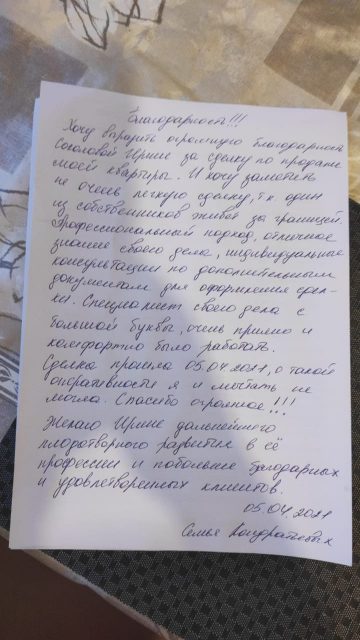 Благодарность!!!
Хочу выразить огромную благодарность
Соколовой Ирине за сделку по продаже
моей квартиры. И хочу заметить
не очень легкую сделку, т.к один
из собственников живёт за границей.
Профессиональный подход, отличное
знание своего дела, индивидуальные
консультации по дополнительным
документам для оформления сдел-
ки. Специалист своего дела с
большой буквы, очень приятно и
комфортно было работать.
Сделка прошла 05.04.2021, о такой
оперативности я и мечтать не
могла. Спасибо огромное!!!
Желаю Ирине дальнейшего
плодотворного развития в её
профессии и побольше благодарных
и удовлетворенных клиентов.
05.04.2021
Семья Кондратьевых